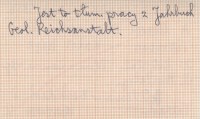 Jest to tłum. pracy z Jahrbuch
Geol. Reichsanstalt.